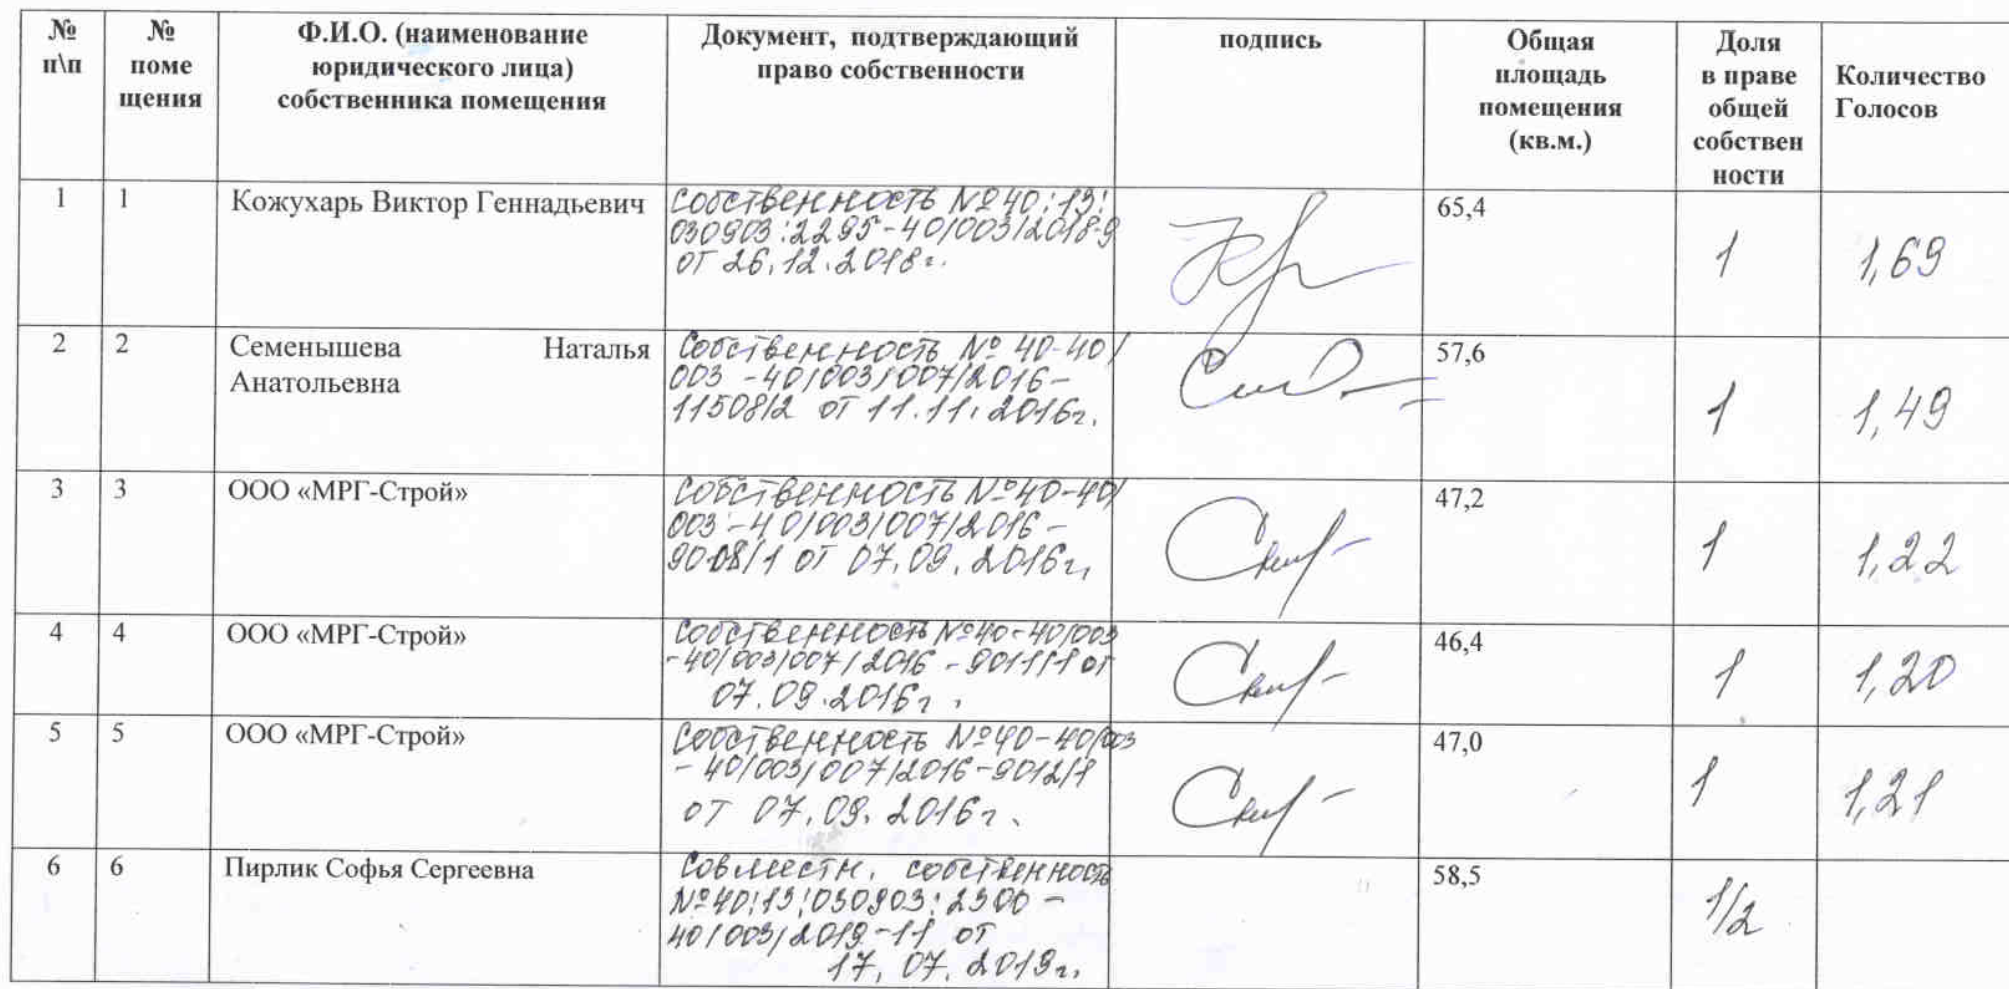 №
п\п
№
поме
щения
Ф.И.О. (наименование
юридического лица)
собственника помещения
Документ, подтверждающий
право собственности
подпись
Общая
площадь
помещения
(кв.м.)
Доля
в праве
общей
собствен
ности
Количество
Голосов
1
1
Кожухарь Виктор Геннадьевич
Собственность №40:13:
030903:2295-40/003/2018-9
от 26.12.2018г.
65,4
1
1,69
2
2
Семенышева Наталья
Анатольевна
Собственность № 40-40/
003-40/003/007/2016-
11508/2 от 11.11.2016г.
57,6
1
1,49
3
3
ООО «МРГ-Строй»
Собственность №40-40/
003-40/003/007/2016-
9008/1 от 07.09.2016г.
47,2
1
1,22
4
4
ООО «МРГ-Строй»
Собственность №40-40/003
-40/003/007/2016-9011/1 от
07.09.2016г.
46,4
1
1,20
5
5
ООО «МРГ-Строй»
Собственность №40-40/003
-40/003/007/2016-9012/1
от 07.09.2016г.
47,0
1
1,21
6
6
Пирлик Софья Сергеевна
Совместн. собственность
№40:13:030903:2300-
40/003/2019-11 от
17.07.2019г.
58,5
1/2